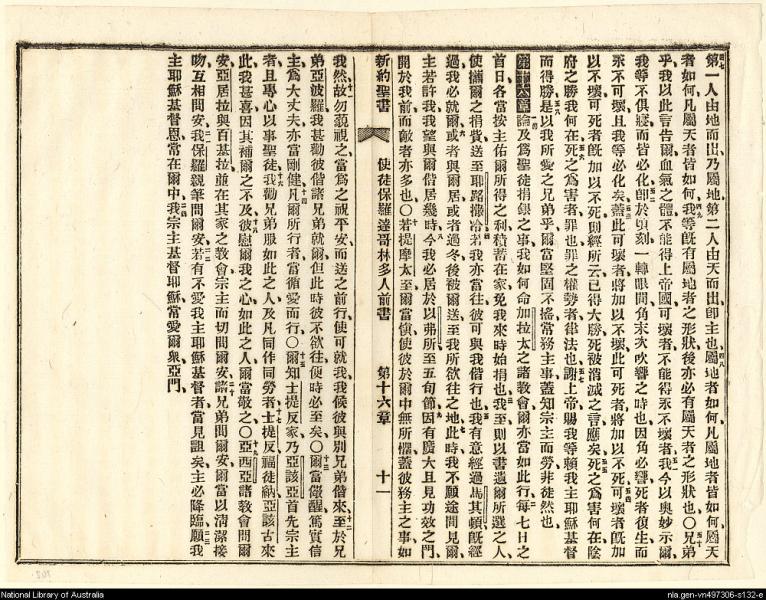 四七
第一人由地而出乃屬地第二人由天而出卽主也屬地者如何凡屬地者皆如何屬天
者如何凡屬天者皆如何我等旣有屬地者之形狀後亦必有屬天者之形狀也〇兄弟
乎我以此言告爾血氣之體不能得上帝國可壞者不能得永不壞者我今以奧妙示爾
我等不俱寢而皆必化卽於頃刻一轉眼間角末次吹響之時也因角必響死者復生而
永不可壞且我等必化矣蓋此可壞者將加以不壞此可死者將加以不死可壞者旣加
以不壞可死者旣加以不死則經所云已得大勝死被消滅之言應矣死之爲害何在陰
府之勝我何在死之爲害者罪也罪之權勢者律法也謝上帝賜我等賴我主耶穌基督
而得勝是以我所愛之兄弟乎爾當堅固不搖常務主事蓋知宗主而勞非徒然也
第十六章論及爲聖徒捐銀之事我如何命加拉太之諸教會爾亦當如此行每七日之
首日各當按主佑爾所得之利積蓄在家免我來時始捐也我至則以書遣爾所選之人
使攜爾之捐貲送至耶路撒冷若我亦當往彼可與我偕行也我有意經過馬其頓旣經
過我必就爾或者與爾居或者過冬後被爾送至我所欲往之地此時我不願途間見爾
主若許我我望與爾偕居幾時今我必居於以弗所至五旬節因有廣大且見功效之門
開於我前而敵者亦多也〇若提摩太至爾當愼使彼於爾中無所懼蓋彼務主之事如
新約聖書 使徒保羅達哥林多人前書 第十六章 十一
我然故勿藐視之當爲之祝平安而送之前行使可就我我候彼與別兄弟偕來至於兄
弟亞波羅我甚勸彼偕諸兄弟就爾但此時彼不欲往便時必至矣〇爾當儆醒篤實信
主爲大丈夫亦當剛健凡爾所行者當循愛而行〇爾知士提反家乃亞該亞首先宗主
者且專心以事聖徒我勸兄弟服如此之人及凡同作同勞者士提反福徒納亞該古來
此我甚喜因其補爾之不及彼慰爾我之心如此之人爾當敬之〇亞西亞諸教會問爾
安亞居拉與百基拉並在其家之教會宗主而切問爾安諸兄弟問爾安爾當以清潔接
吻互相問安我保羅親筆問爾安若有不愛我主耶穌基督者當見詛矣主必降臨願我
主耶穌基督恩常在爾中我宗主基督耶穌常愛爾衆亞門
National Library of Australia
nla.gen-vn497306-s132-e